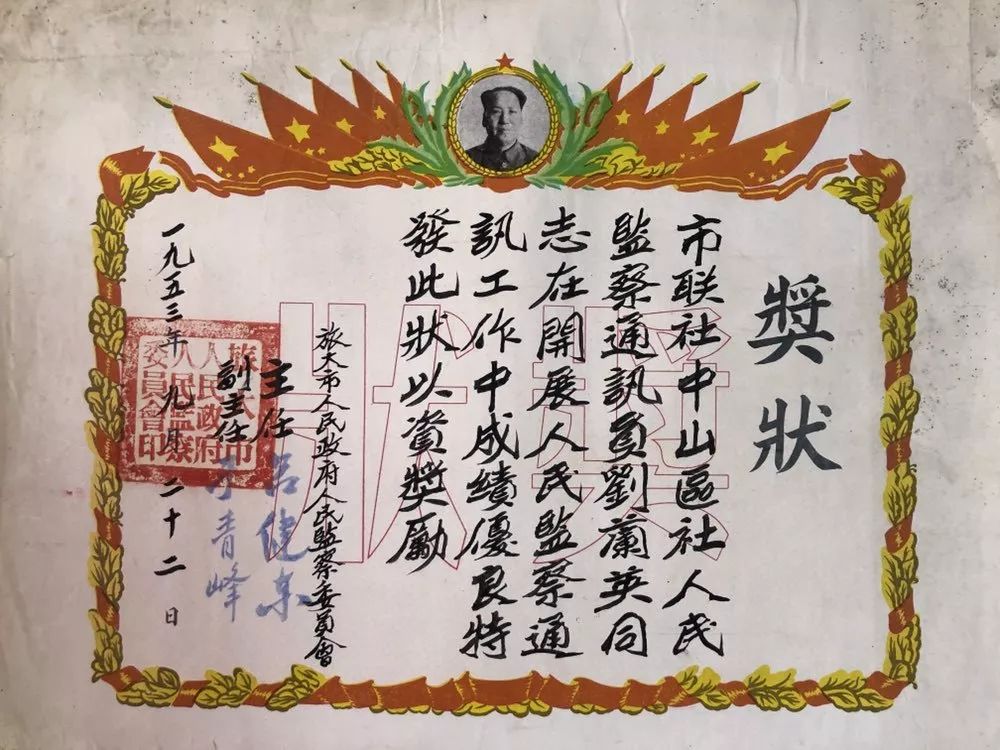 獎狀
市联社中山區社人民
監察通訊員劉蘭英同
志在開展人民監察通
訊工作中成績優良特
發此狀以資獎勵
旅大市人民政府人民監察委員會
主任
副主任 于青峰
一九五三年九月二十二日
旅大市
人民政府
人民監察
委員會印
獎狀